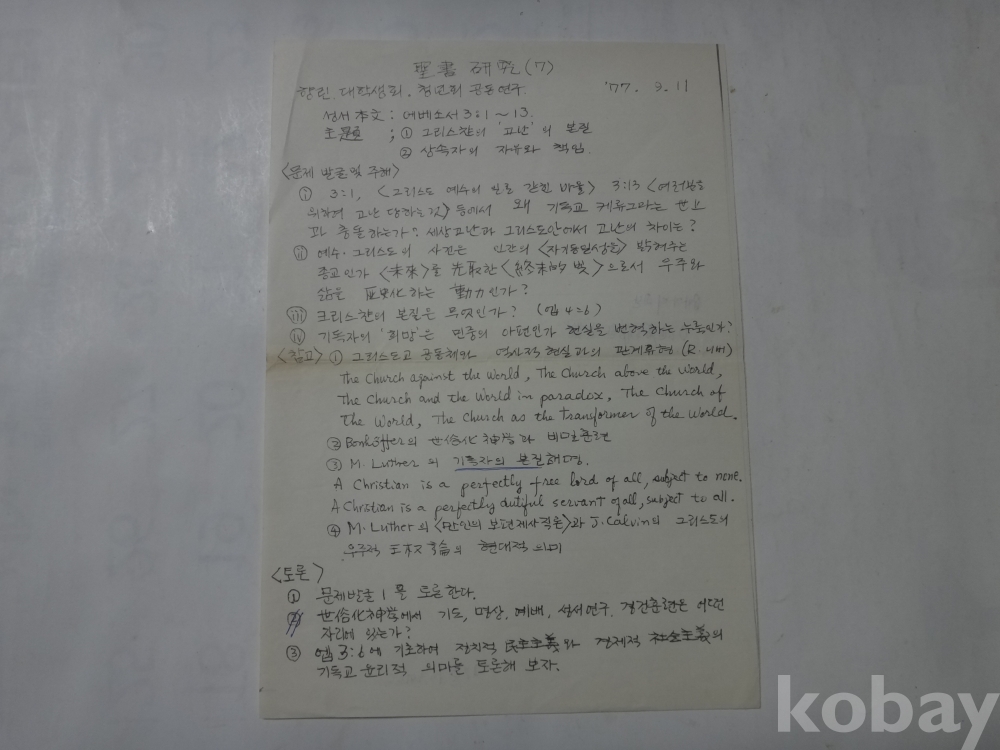 聖書 研究 (7)
향린 대학생회. 청년회 공동연구. '77. 9. 11
성서本文 : 에베소서 3:1 ~ 13.
主題 ; ① 그리스챤의 '고난'의 본질
② 상속자의 자유와 책임.
<문제 발굴및 주해>
ⓘ 3:1, <그리스도 예수의 일로 갇힌 바울> 3:13 <여러분을
위하여 고난 당하는것> 등에서 왜 기독교 케류그마는 世上
과 충돌하는가? 세상고난과 그리스도안에서 고난의 차이는?
ⓘⓘ 예수·그리스도의 사건은 인간의 <자기동일성을>
종교인가 <未來>를 先取한 <終末的 빛>으로서 우주와
삶을 歷史化하는 動力인가?
ⓘⓘⓘ 크리스챤의 본질은 무엇인가? (엡 4:6)
ⓘⓥ 기독자의 '희망'은 민중의 아편인가 현실을 변혁하는 누룩인가?
<참고> ① 그리스도교 공동체와 역사적 현실과의 관계유형 (R. 니버)
The Church against the World, The Church above the World,
The Church and the World in paradox, The Church of
the World, The Church as the transformer of the World.
② Bonhöffer의 世俗化 神学과 비밀훈련
③ M. Luther의 기독자의 본질해명.
A Christian is a perfectly free lord of all, subject to none.
A Christian is a perfectly dutiful servant of all, subject to all.
④ M. Luther의 <만인의 보편제사직론>과 J. Calvin의 그리스도의
우주적 王权論의 현대적 의미
<토론>
① 문제발굴 1을 토론한다.
② 世俗化神学에서 기도, 명상, 예배, 성서연구, 경건훈련은 어떤
자리에 있는가?
③ 엡 3:6에 기초하여 정치적 民主主義와 경제적 社会主義의
기독교 윤리적 의미를 토론해 보자.
kobay